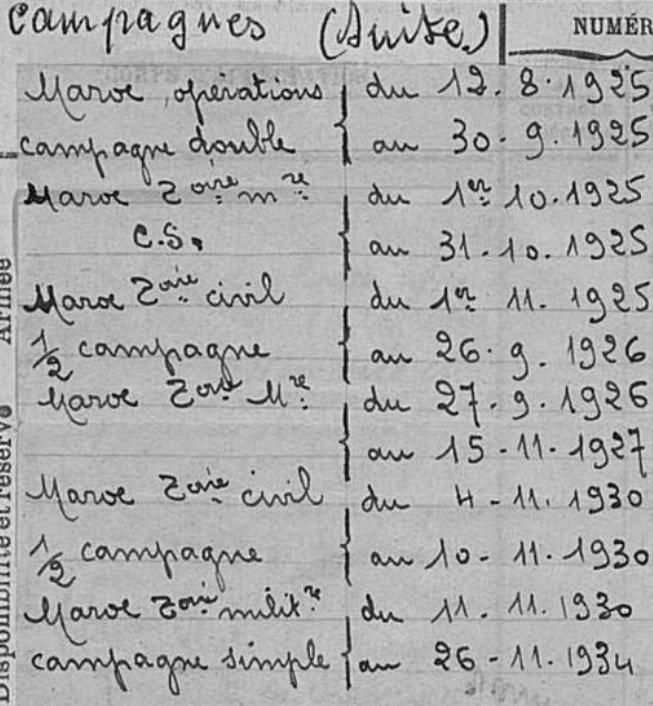 Campagnes (Suite.) NUMÉR
Maroc, opérations du 12. 8. 1925
campagne double au 30. 9. 1925
Maroc Zone mre du 1er 10. 1925
C.S. au 31. 10. 1925
Maroc Zone civil du 1er 11. 1925
1/2 campagne au 26. 9. 1926
Maroc Zone Mre du 27. 9. 1926
au 15-11-1927
Maroc Zone civil du 4-11. 1930
1/2 campagne au 10-11. 1930
Maroc Zone militre du 11. 11. 1930
campagne simple au 26-11. 1934
Disponibilité et réserve
Armée